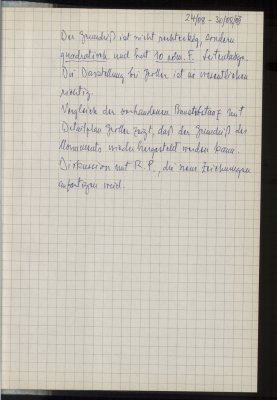 24/08 - 30/08/88
Der Grundriß ist nicht rechteckig, sondern
quadratisch und hat 10 röm. F. Seitenlänge.
Die Darstellung bei Groller ist im wesentlichen
richtig.
Vergleich der vorhandenen mit
Detailplan Groller zeigt, daß der Grundriß des
Monuments wiederhergestellt werden kann.
Diskussion mit R.P., die neue Zeichnungen
anfertigen wird.